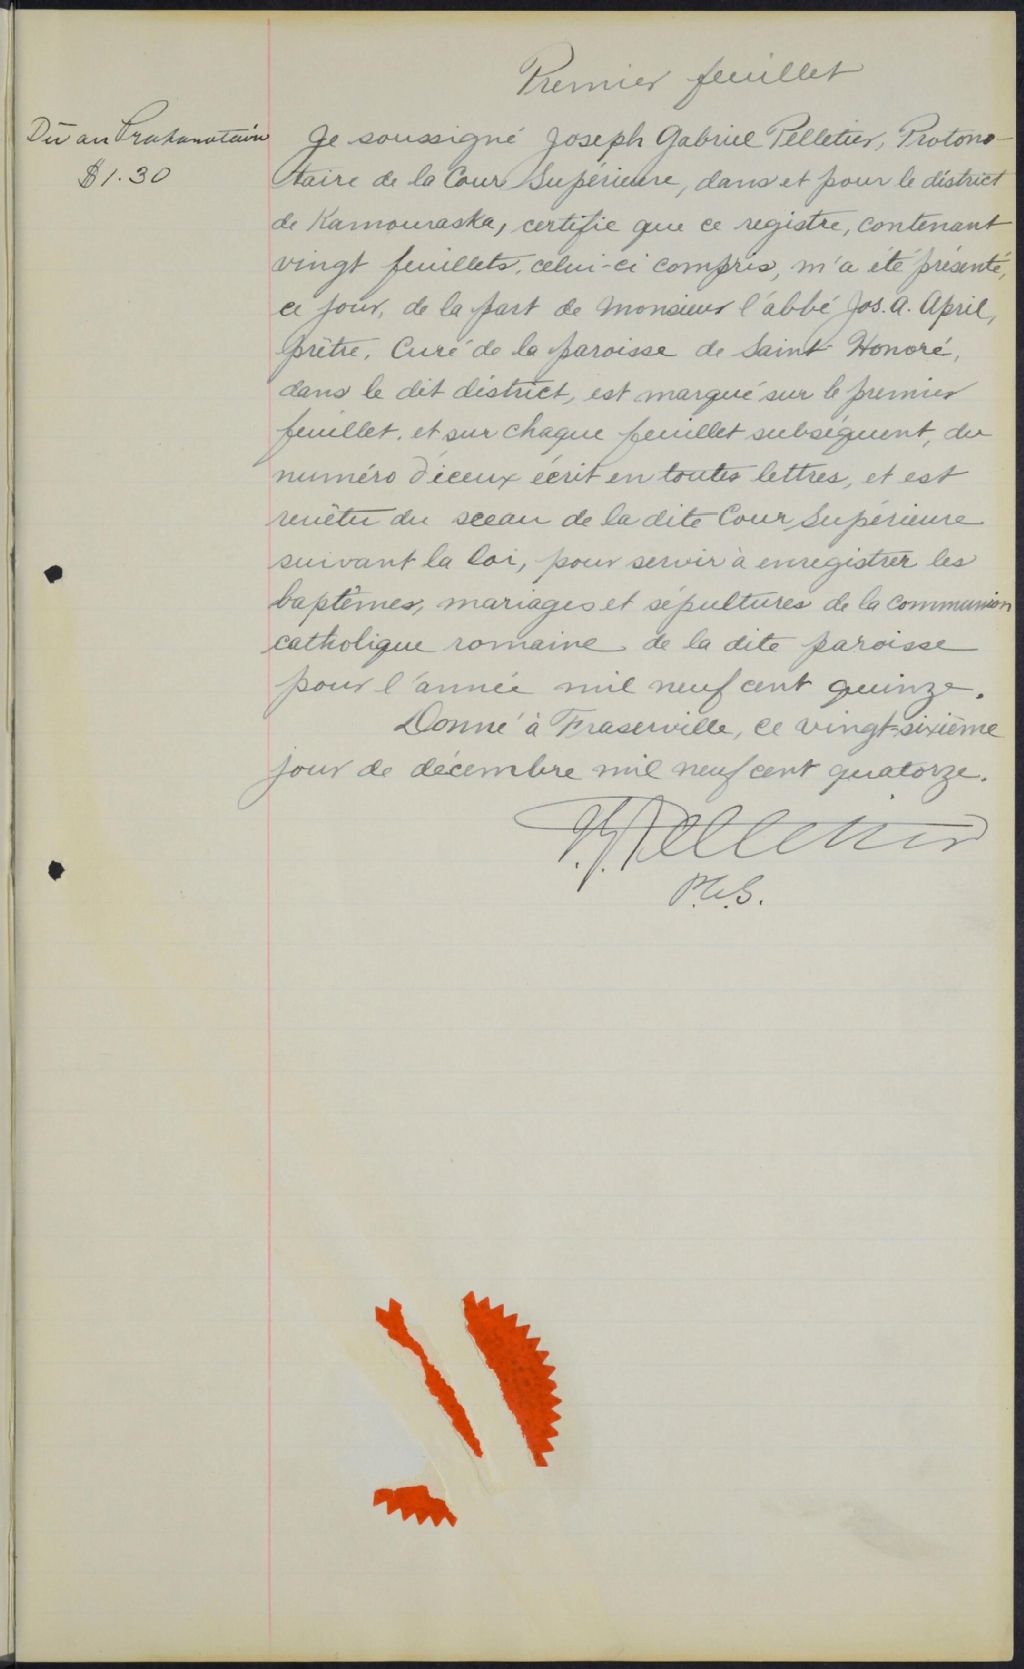 Premier feuillet
Dû au Protonotaire
$1.30
Je soussigné Joseph Gabriel Pelletier, Protono-
taire de la Cour Supérieure, dans et pour le district
de Kamouraska, certifie que ce registre, contenant
vingt feuillets, celui-ci compris, m'a été présenté,
ce jour, de la part de Monsieur l'abbé Jos. A. April,
prêtre, Curé de la paroisse de Saint Honoré,
dans le dit district, est marqué sur le premier
feuillet, et sur chaque feuillet subséquent, du
numéro d'iceux écrit en toutes lettres, et est
revêtu du sceau de la dite Cour Supérieure
suivant la loi, pour servir à enregistrer les
baptêmes, mariages et sépultures de la communion
catholique romaine de la dite paroisse
pour l'année mil neuf cent quinze.
Donné à Fraserville, ce vingt-sixième
jour de décembre mil neuf cent quatorze.
J. G. Pelletier
P.C.S.